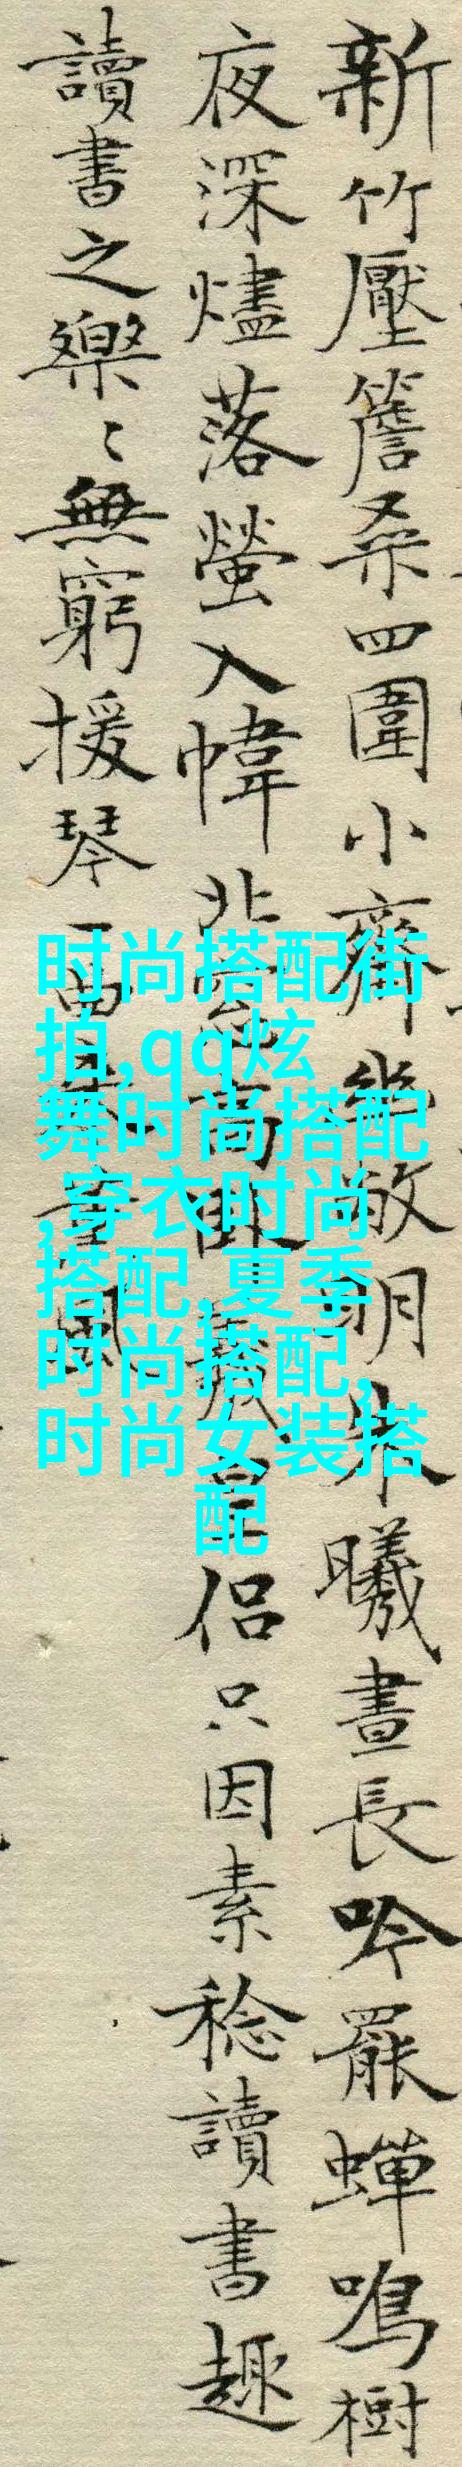 新竹壓簷桑四圍小齋幽敞明朱曦晝長吟罷蟬鳴樹
夜深燼落螢入幃北窗高臥羲皇侶只因素稔讀書趣
讀書之樂〻無窮援琴一曲來薰風
时尚搭配街
拍,qq炫
舞时尚搭配
,穿衣时尚
搭配,夏季
时尚搭配,
时尚女装搭
配